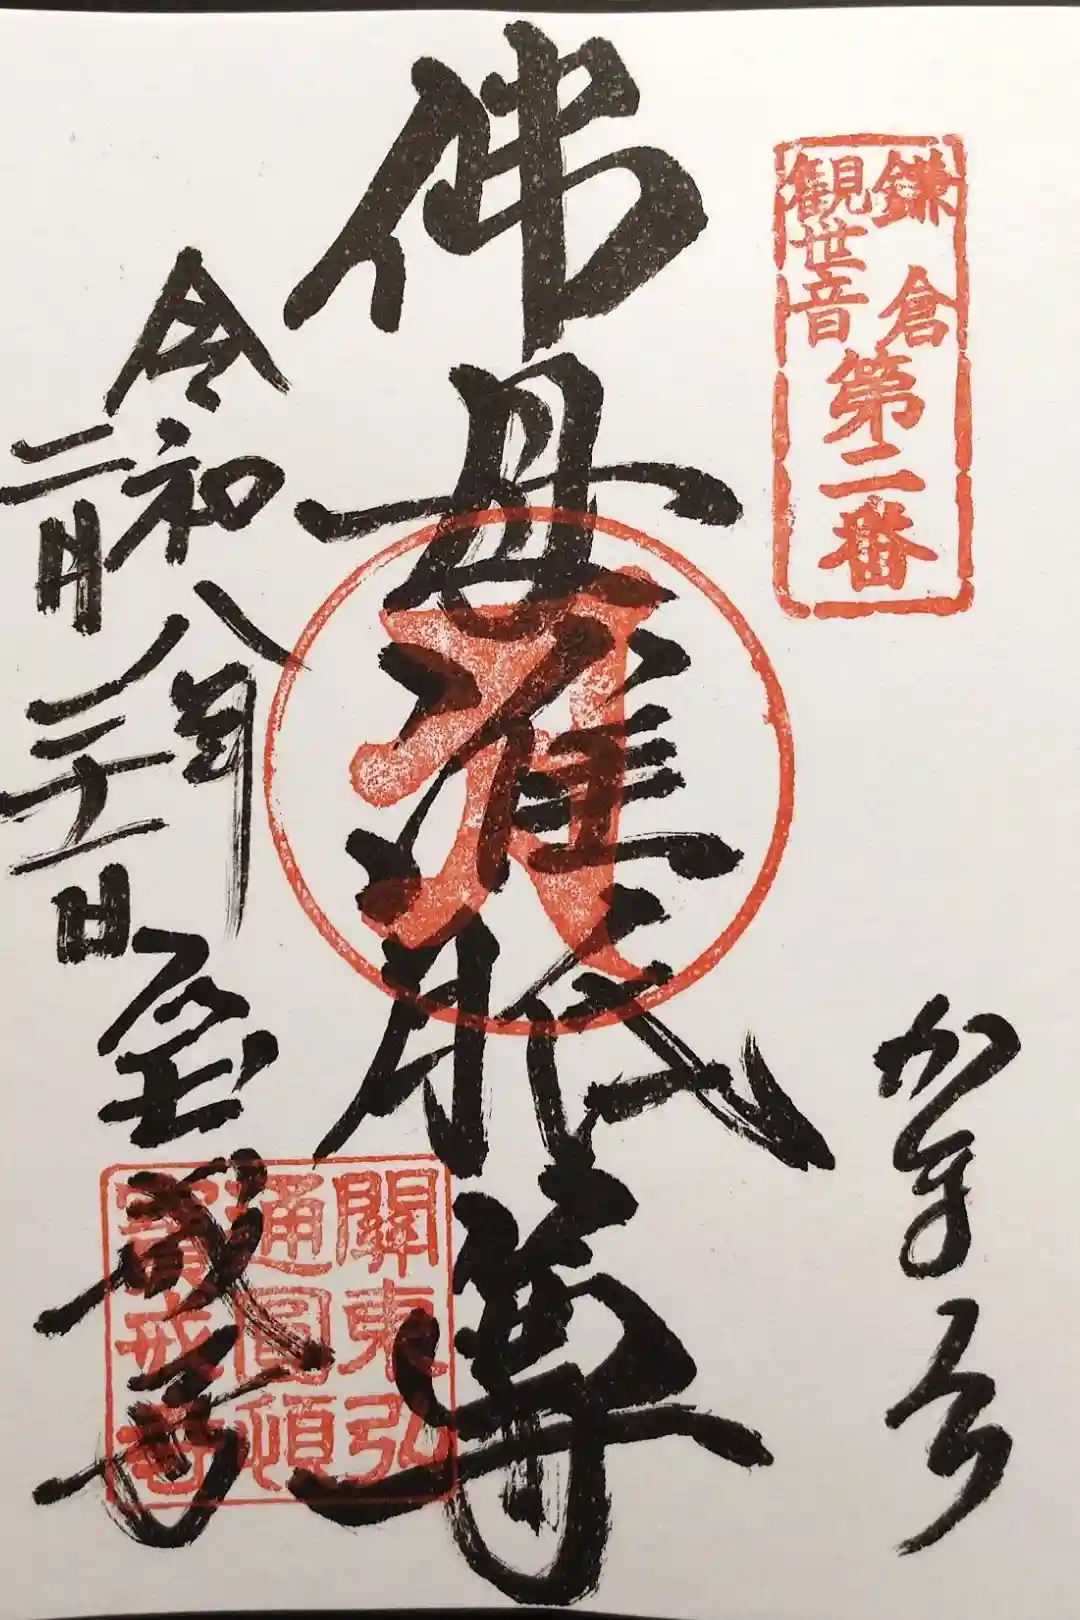 鎌倉
観世音
第二番
かまくら
佛母准胝尊
令和八年
二月二十一日
宝戒寺
關東弘
通圓頓
寳戒寺